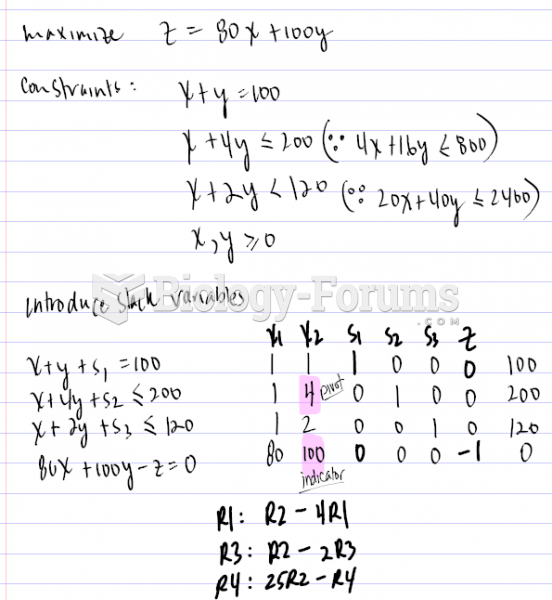 maximize Z = 80x + 100y
Constraints: x + y = 100
x + 4y ≤ 200 (∵ 4x + 16y ≤ 800)
x + 2y < 120 (∵ 20x + 40y ≤ 2400)
x, y ≥ 0
Biology-Forums
.COM
introduce slack variables
x1 x2 s1 s2 s3 z
x + y + s1 = 100 1 1 1 0 0 0 100
x + 4y + s2 ≤ 200 1 4 pivot 0 1 0 0 200
x + 2y + s3 ≤ 120 1 2 0 0 1 0 120
80x + 100y - z = 0 80 100 0 0 0 -1 0
indicator
R1: R2 - 4R1
R3: R2 - 2R3
R4: 25R2 - R4